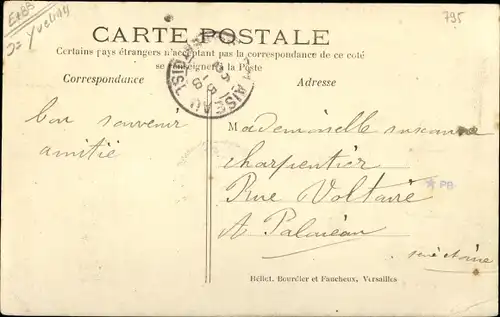 795
Yvelines
CARTE POSTALE
Certains pays étrangers n'acceptant pas la correspondance de ce coté
se renseigner à la Poste
Correspondance
Adresse
bon souvenir
amitié
Mademoiselle Susanne
Charpentier
Rue Voltaire
PB
A Palaiseau
Seine et Oise
Héliot. Bourdier et Faucheux, Versailles